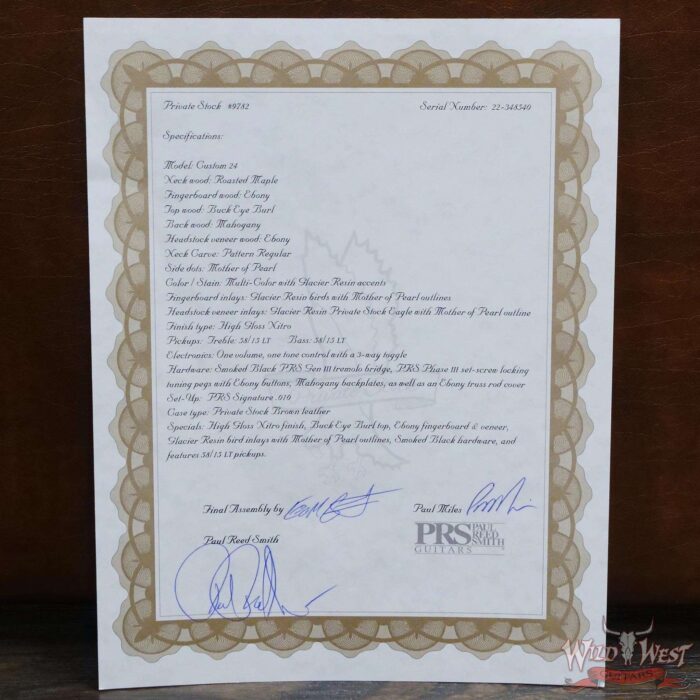 Private Stock #9782 Serial Number: 22-348540
Specifications:
Model: Custom 24
Neck wood: Roasted Maple
Fingerboard wood: Ebony
Top wood: Buck Eye Burl
Back wood: Mahogany
Headstock veneer wood: Ebony
Neck Carve: Pattern Regular
Side dots: Mother of Pearl
Color / Stain: Multi-Color with Glacier Resin accents
Fingerboard inlays: Glacier Resin birds with Mother of Pearl outlines
Headstock veneer inlays: Glacier Resin Private Stock Eagle with Mother of Pearl outline
Finish type: High Gloss Nitro
Pickups: Treble: 58/15 LT Bass: 58/15 LT
Electronics: One volume, one tone control with a 3-way toggle
Hardware: Smoked Black PRS Gen III tremolo bridge, PRS Phase III set-screw locking
tuning pegs with Ebony buttons, Mahogany backplates, as well as an Ebony truss rod cover
Set-Up: PRS Signature .010
Case type: Private Stock Brown leather
Specials: High Gloss Nitro finish, Buck Eye Burl top, Ebony fingerboard & veneer,
Glacier Resin bird inlays with Mother of Pearl outlines, Smoked Black hardware, and
features 58/15 LT pickups.
Final Assembly by
Paul Miles
Paul Reed Smith
PRS PAUL REED SMITH
GUITARS
WILD WEST
GUITARS